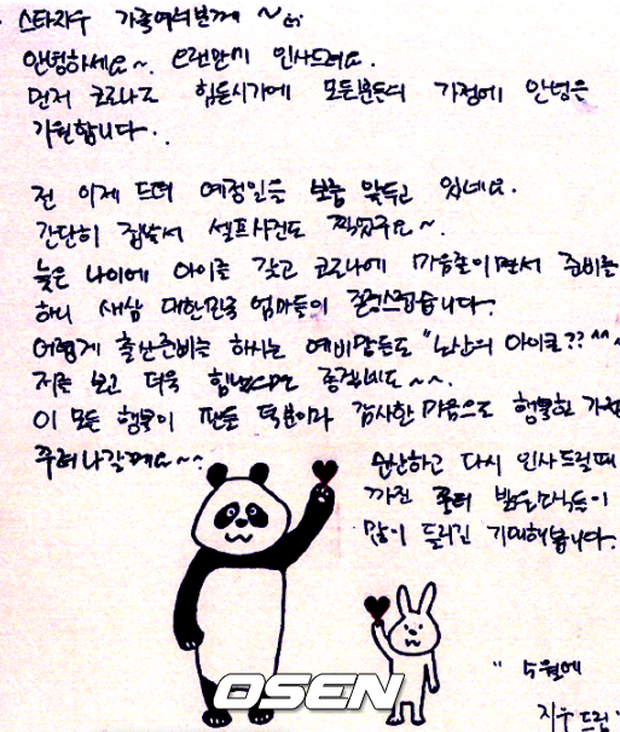 스타지우 가족여러분께 ~
안녕하세요~. 오랜만에 인사드려요.
먼저 코로나로 힘든시기에 모든분들의 가정에 안녕을
기원합니다.
전 이제 드뎌 예정일을 보름 앞두고 있네요.
간단히 집에서 셀프사진도 찍었구요~.
늦은 나이에 아이를 갖고 코로나에 마음졸이면서 준비를
하니 새삼 대한민국 엄마들이 존경스럽습니다.
어렵게 출산준비를 하시는 예비맘들도 "노산의 아이콘?? ^^~
저를 보고 더욱 힘내시면 좋겠네요~~.
이 모든 행복이 팬들 덕분이라 감사한 마음으로 행복한 가정
꾸려나갈께요~~.
순산하고 다시 인사드릴때
까진 좀더 밝은소식들이
많이 들리길 기대해봅니다.
" 5월에
지우 드림 "
OSEN